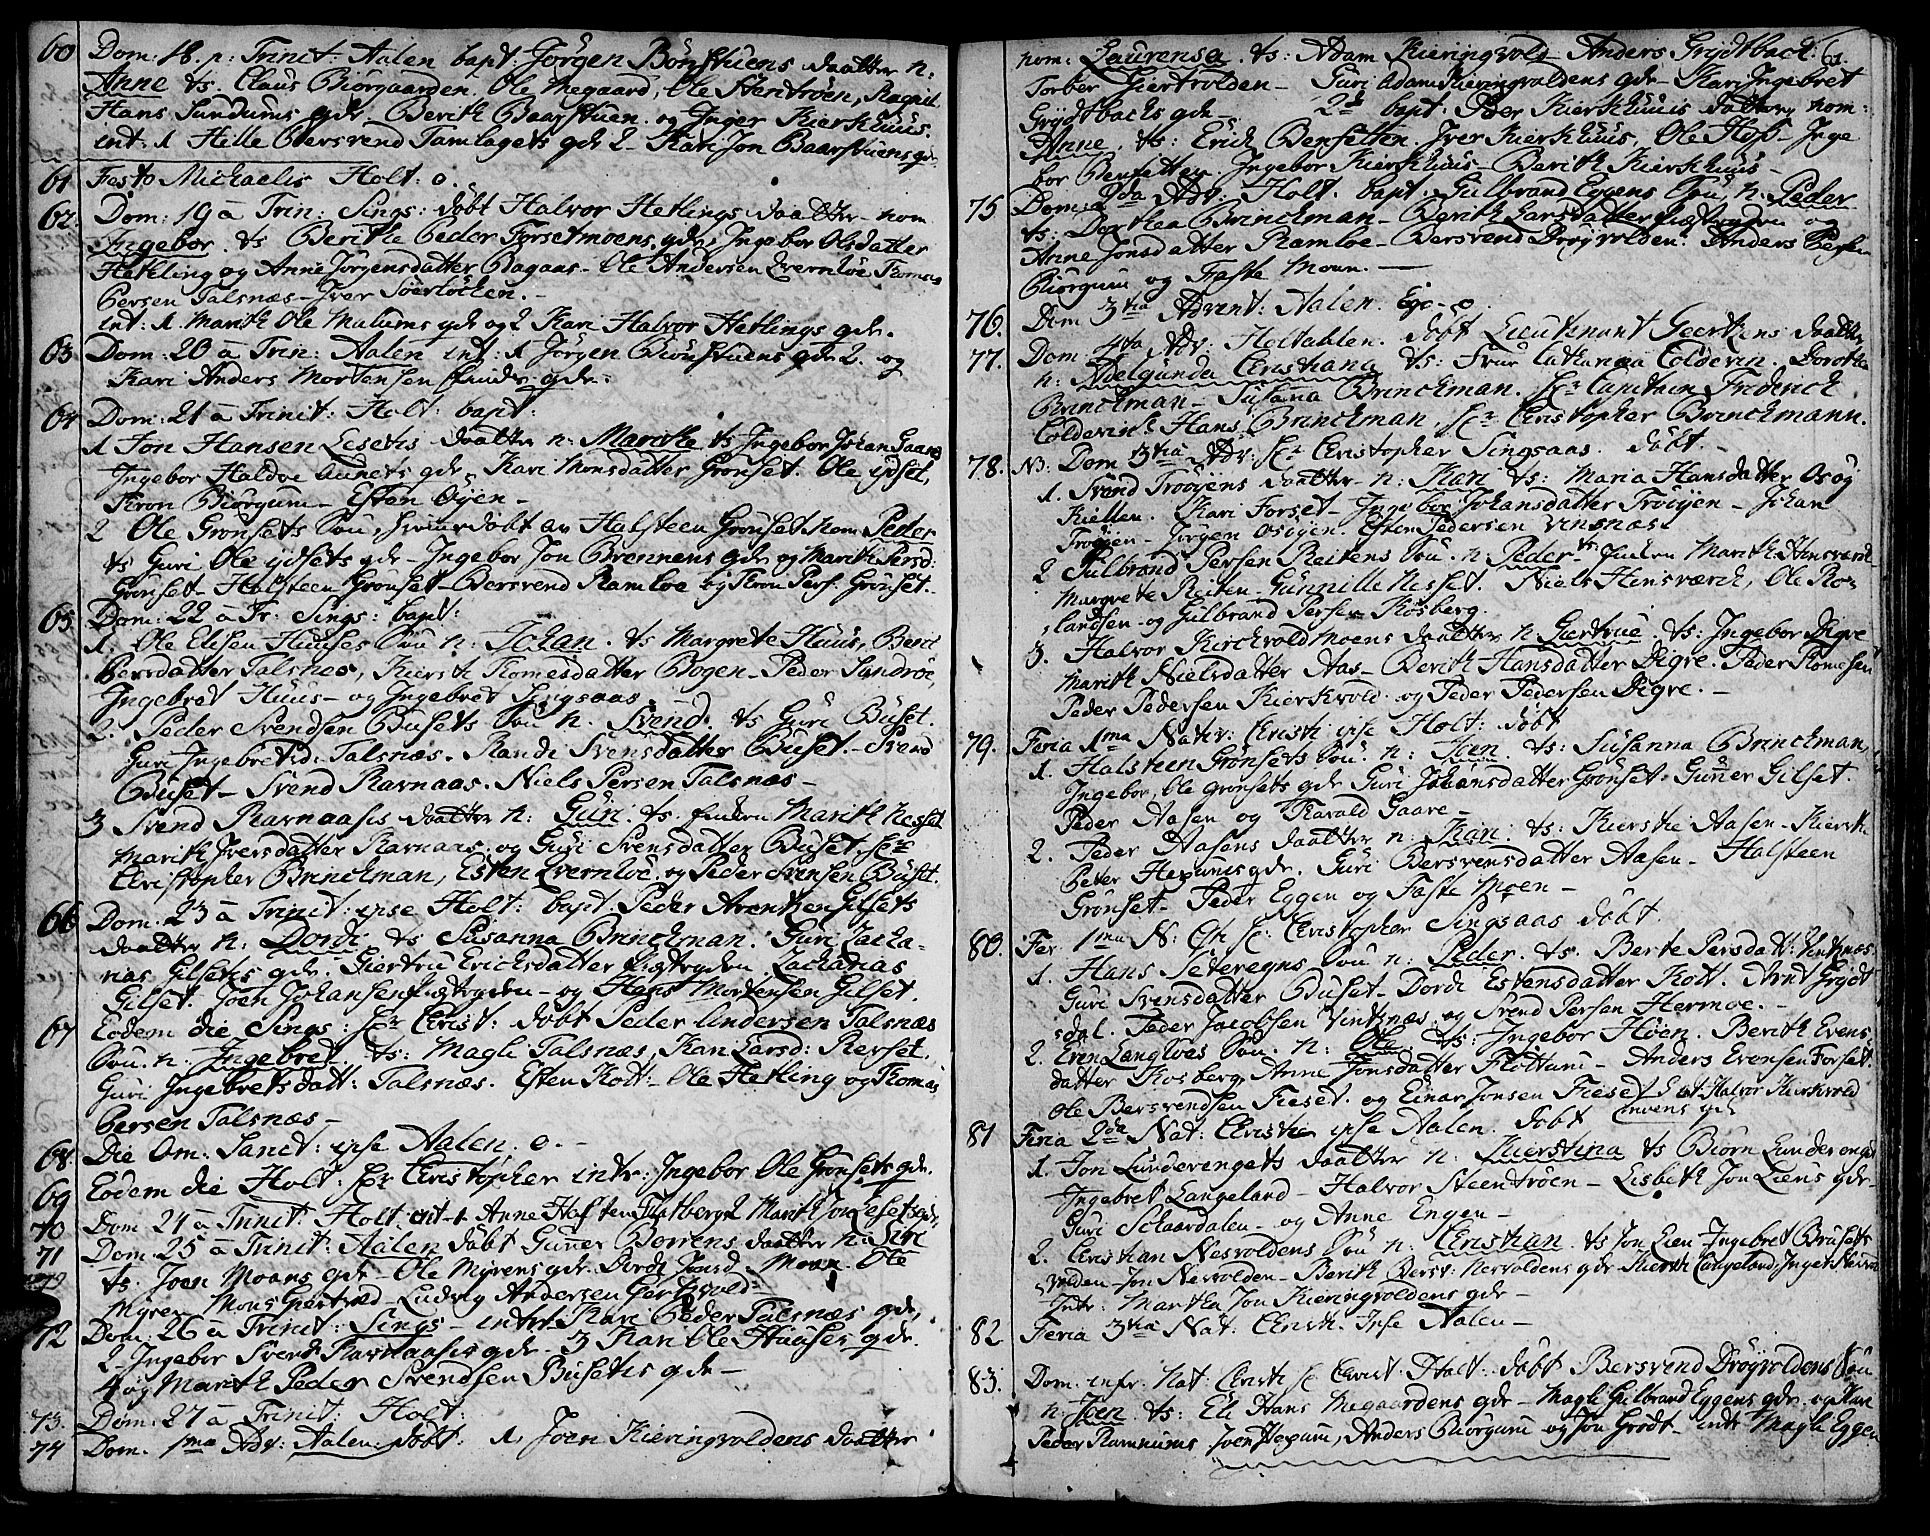 60 Dom: 18. p: Trinit: Aalen bapt: Jörgen Bönstuens daatter n:
Anne ts. Claus Biörgaarden. Ole Megaard, Ole Stentröen, Ragnil
Hans Sundums gdr Berith Baarstuen og Inger Kierkhuus.
int: 1 Helle Bersvend Tamlagets gdr 2- Kari Jon Baarstuens gdr
61 Festo Michaelis Holt: o.
62. Dom: 19 à Trin: Sings: döbt Halvor Hetlings daatter nom
Ingebor. ts Berithe Peder Forsetmoens gdr, Ingebor Olsdatter
Hetling og Anne Jörgensdatter Bogans- Ole Andersen Kvernlöe Thomas
Persen Talsnæs- Iver
int: 1. Marith Ole Malums gdr og 2 Kari Halvor Hetlings gdr.
63 Dom: 20 à Trin: Aalen int: 1 Jörgen Bönstuens gdr 2. og
Kari Anders Mortensen gdr.
64 Dom: 21 à Trinit: Holt: bapt:
1 Jon Hansen Lesetis daatter n: Marithe ts Ingebor Johan Gaare
Ingebor Haldoe Aunets gdr, Kari Monsdatter Grönset. Ole Ydset,
Thron Biörgum- Esten Öyen-
2 Ole Grönsets Sön, döbt av Halsteen Grönset nom Peder
ts Guri Ole Ydsets gdr- Ingebor Jon Brennens gdr og Marith Persd:
Grönset- Halsteen Grönset- Bersvend Ramloe og Thron Pers. Grönset.
65 Dom: 22 à Tr: Sings: bapt:
1. Ole Elisen Huuses Sön n: Johan. ts Margrete Huus, Berit
Persdatter Talsnes, Kiersti Thomesdatter Bogen- Peder Sundröe,
Ingebret Huus- og Ingebret Singsaas
2. Peder Svendsen Busets Sön n. Svend. ts Guri Buset.
Guri Ingebretsd: Talsnæs. Randi Svensdatter Buset.- Svend
Buset- Svend Ravnaas. Niels Persen Talsnæs-
3 Svend Ravnaasis daatter n: Guri. ts. Enken Marith Nesset
Marith Iversdatter Ravnaas, og Guri Svensdatter Buset, Hr
Christopher Brinckman, Esten Kvernlöe, og Peder Svensen Buset.
66 Dom: 23 à Trinit: ipse Holt: bapt: Peder Arentzen Gilsets
daatter n: Dordi ts Susanna Brinckman. Guri Zacha-
rias Gilsetis gdr. Giertru Ericksdatter Zacharias
Gilset. Joen Johansen - og Hans Mortensen Gilset.
67 Eodem die Sings: Hr Christ: döbt Peder Andersen Talsnæs
Sön. n. Ingebret. ts: Magli Talsnæs, Kari Larsd: Rerset.
Guri Ingebretsdatt: Talsnæs. Esten Kott- Ole Hetling og Thomas
Persen Talsnæs-
68 Die Om: Sanct: ipse Aalen. o.-
69 Eodem die Holt: Hr Christopher intr: Ingebor Ole Grönsets gdr.
70 Dom: 24 à Trinit: Holt: int- 1 Anne Haften 2 Marith Jon Lesets gdr,
71 Dom: 25 à Trinit: Aalen döbt Gunner Borrens daatter n: Siri
ts. Joen Moans gdr- Ole Myrens gdr. Dordi Jonsd. Moan. Ole
Myren Mons Giertvold Ludvig Andersen Giertsvold-
72 Dom: 26 à Trinit: Sings- intr Kari Peder Talsnæs gdr,
2- Ingebor Svend Ravnaasis gdr- 3 Kari Ole Huuses gdr.
4 og Marith Peder Svendsen Busetis gdr-
73. Dom: 27 à Trinit: Holt:
74 Dom. 1ma Adv: Aalen döbt: 1, Joen Kieringvoldens daatter
61.
nom: Laurensa. ts: Adam Kieringvold Anders Grydtbach
Torber Giertvolden- Guri Adam Kieringvoldens gdr- Kari Ingebret
Grydtbachs gdr- 2de bapt Peer Kierkhuus datter nom:
Anne. ts: Erick Bensetten Iver Kierkhuus, Ole Hof- Inge
bor Bensetten, Ingebor Kierkhuus- Berith Kierkhuus-
75 Dom: 2da Adv: Holt. bapt. Gulbrand Eggens Sön, n: Peder
ts: Dorthea Brinckman- Berith Larsdatter og
Anne Jonsdatter Ramloe- Bersvend Dröyvolden. Anders Persen
Biörgum og Faste Moen.-
76. Dom 3tia Advent: Aalen. Ego- o.
77. Dom 4ta Adv: Holtaalen. döbt Lieutenant Geertsens daatter
n: Adelgunda Christiana ts: Frue Catharina Colderin. Dorothea
Brinckman- Susana Brinckman. Hr Capitain Frederick
Colderin, Hans Brinckman, Hr Christopher Brinckmann.
78. NB. Dom 3tia Adv: Hr Christopher Singsaas. döbt.-
1. Svend Trööyens daatter- n: Kari ts: Maria Hansdatter Osög
Kiellen. Kari Forset- Ingebor Johansdatter Tröoyen- Johan
Tröoyen- Jörgen Osögen. Esten Pedersen Vinsnæs.
2 Gulbrand Persen Reitens Sön. n: Peder ts: Enken Marith Hinsværck
Margrete Reiten. Gunnille Nesset. Niels Hinsværck, Ole Ro-
landsen og Gulbrand Persen Kosberg.
3. Halvor Kirchvoldmoens daatter n Giertrue. ts: Ingebor Digre
Marith Nielsdatter Aas- Berith Hansdatter Digre. Peder Thomesen
Peder Pedersen Kierkvold. og Peder Pedersen Digre.-
79. Feria 1ma Nativ: Christi ipse Holt: döbt
1. Halsteen Grönsets Sön. n: Joen ts: Susanna Brinckman,
Ingebor, Ole Grönsets gdr Guri Johansdatter Grönset. Guner Gilset.
Peder Aasen og Harald Gaare-
2. Peder Aasens daatter n: Kari. ts: Kierstie Aasen- Kiersti
Peter Hexums gdr. Guri Bersvensdatter Aasen- Halsteen
Grönset- Peder Eggen og Faste Moen-
80. Fer. 1ma N: Ch Hr Christopher Singsaas döbt
1. Hans Seteregns Sön n: Peder. ts. Berte Persdatt: Vintsnæs
Guri Svensdatter Buset- Dordi Estensdatter Kott. Arnt Grydt
dal. Peder Jacobsen Vintsnæs og Svend Persen Hermoe.-
2. Erin Langloes Sön. n: Ole. ts: Ingebor Höen. Berith Evens
datter Kosberg, Anne Jonsdatter Flottum- Anders Evensen Forset.
Ole Bersvendsen Fieset. og Einar Jonsen Fieset int: Halvor Kierkvold
moens gdr
81 Feria 2da Nat: Christi ipse Aalen. döbt
1. Jon Lunderengets daatter n: Kierstina ts Biörn Lundereng
Ingebret Langeland- Halvor Steentröen- Lisbeth Jon Liens gdr-
Guri Schaardalen- og Anne Engen-
2. Christian Nesvoldens Sön n: Christian. ts Jon Lien- Ingebret Busets
volden- Jon Nesvolden- Berith Berst: Nesvoldens gdr- Kierstie Langeland, Inger
Intr: Martha Jon Kieringvoldens gdr-
82 Feria 3tia Nat: Christi. Ipse Aalen-
83. Dom. infr: Nat: Christi Hr Christ Holt: döbt Bersvend Dröyvoldens Sön
n: Joen. ts: Eli Hans Megaardens gdr- Magli Gulbrand Eggens gdr- og Kari
Peder Ramnums Joen Hexum, Anders Biörgum og Jon Grödt- intr Magli Eggen